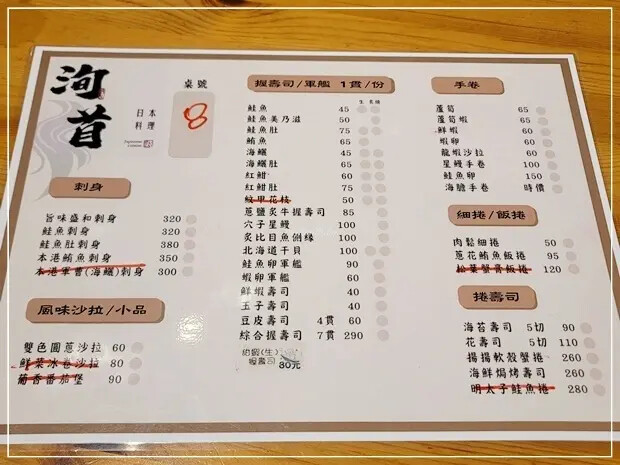 洵苜
日本
料理
桌號
8
刺身
旨味盛和刺身 320
鮭魚刺身 320
鮭魚肚刺身 380
本港鮪魚刺身 350
本港軍曹(海鱺)刺身 300
風味沙拉/小品
雙色圓蔥沙拉 60
鮮葉冰卷沙拉 80
葡香番茄堡 90
握壽司/軍艦 1貫/份
鮭魚 45
鮭魚美乃滋 50
鮭魚肚 75
鮪魚 65
海鱺 45
海鱺肚 65
紅魽 60
紅魽肚 75
紋甲花枝 50
蔥鹽炙牛握壽司 85
穴子星鰻 100
炙比目魚側緣 100
北海道干貝 100
鮭魚卵軍艦 90
蝦卵軍艦 60
鮮蝦壽司 40
玉子壽司 40
豆皮壽司 4貫 60
綜合握壽司 7貫 290
握壽司 80元
手卷
蘆筍 65
蘆筍蝦 65
鮮蝦 60
蝦卵 60
龍蝦沙拉 60
星鰻手卷 120
鮭魚卵 150
海膽手卷 時價
細捲/飯捲
肉鬆細捲 50
蔥花鮪魚飯捲 95
松葉蟹膏飯捲 120
捲壽司
海苔壽司 5切 90
花壽司 5切 110
揚揚軟殼蟹捲 260
海鮮焗烤壽司 260
明太子鮭魚捲 280